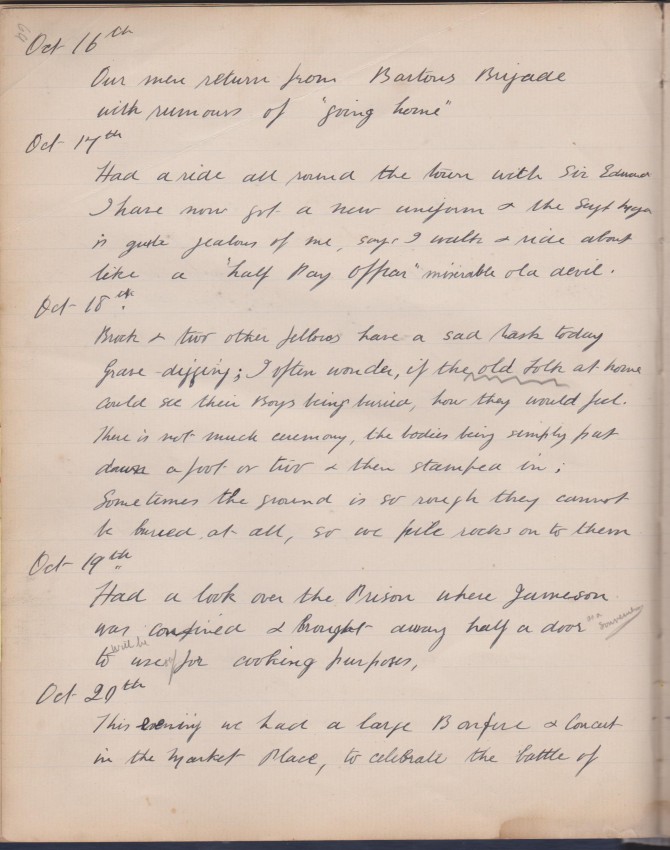 Oct 16th
Our men return from Bartons Brigade
with rumours of "going home"
Oct 17th
Had a ride all round the town with Sir Edward
I have now got a new uniform & the Sergt Major
is quite jealous of me, says I walk & ride about
like a "half Pay Officer" miserable old devil.
Oct 18th
Brock & two other fellows have a sad task today
Grave-digging; I often wonder, if the old folk at home
could see their Boys being buried, how they would feel.
There is not much ceremony, the bodies being simply put
down a foot or two & then stamped in;
Sometimes the ground is so rough they cannot
be buried at all, so we pile rocks on to them
Oct 19th
Had a look over the Prison where Jameson
was confined & brought away half a door
as a souvenir
will be
to use for cooking purposes,
Oct 20th
This evening we had a large Bonfire & Concert
in the Market Place, to celebrate the battle of